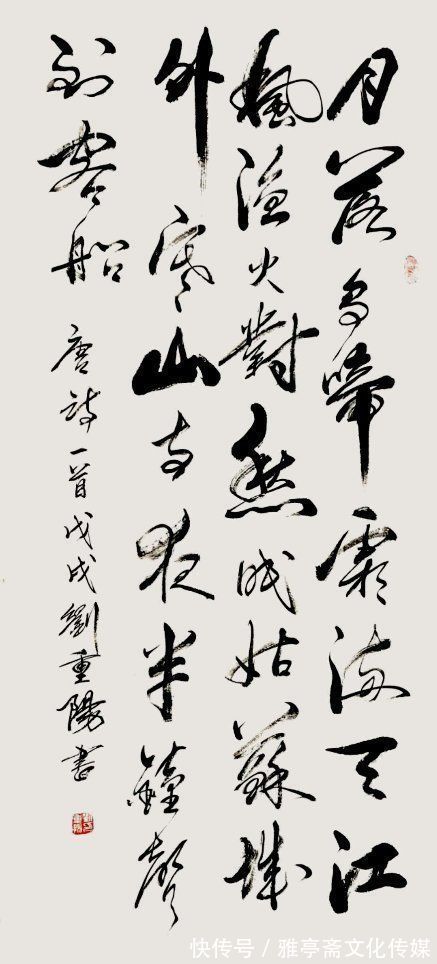 月落烏啼霜滿天江
楓漁火對愁眠姑蘇城
外寒山寺夜半鐘聲
到客船
唐詩一首戊戌劉重陽書
快传号 / 雅亭斋文化传媒